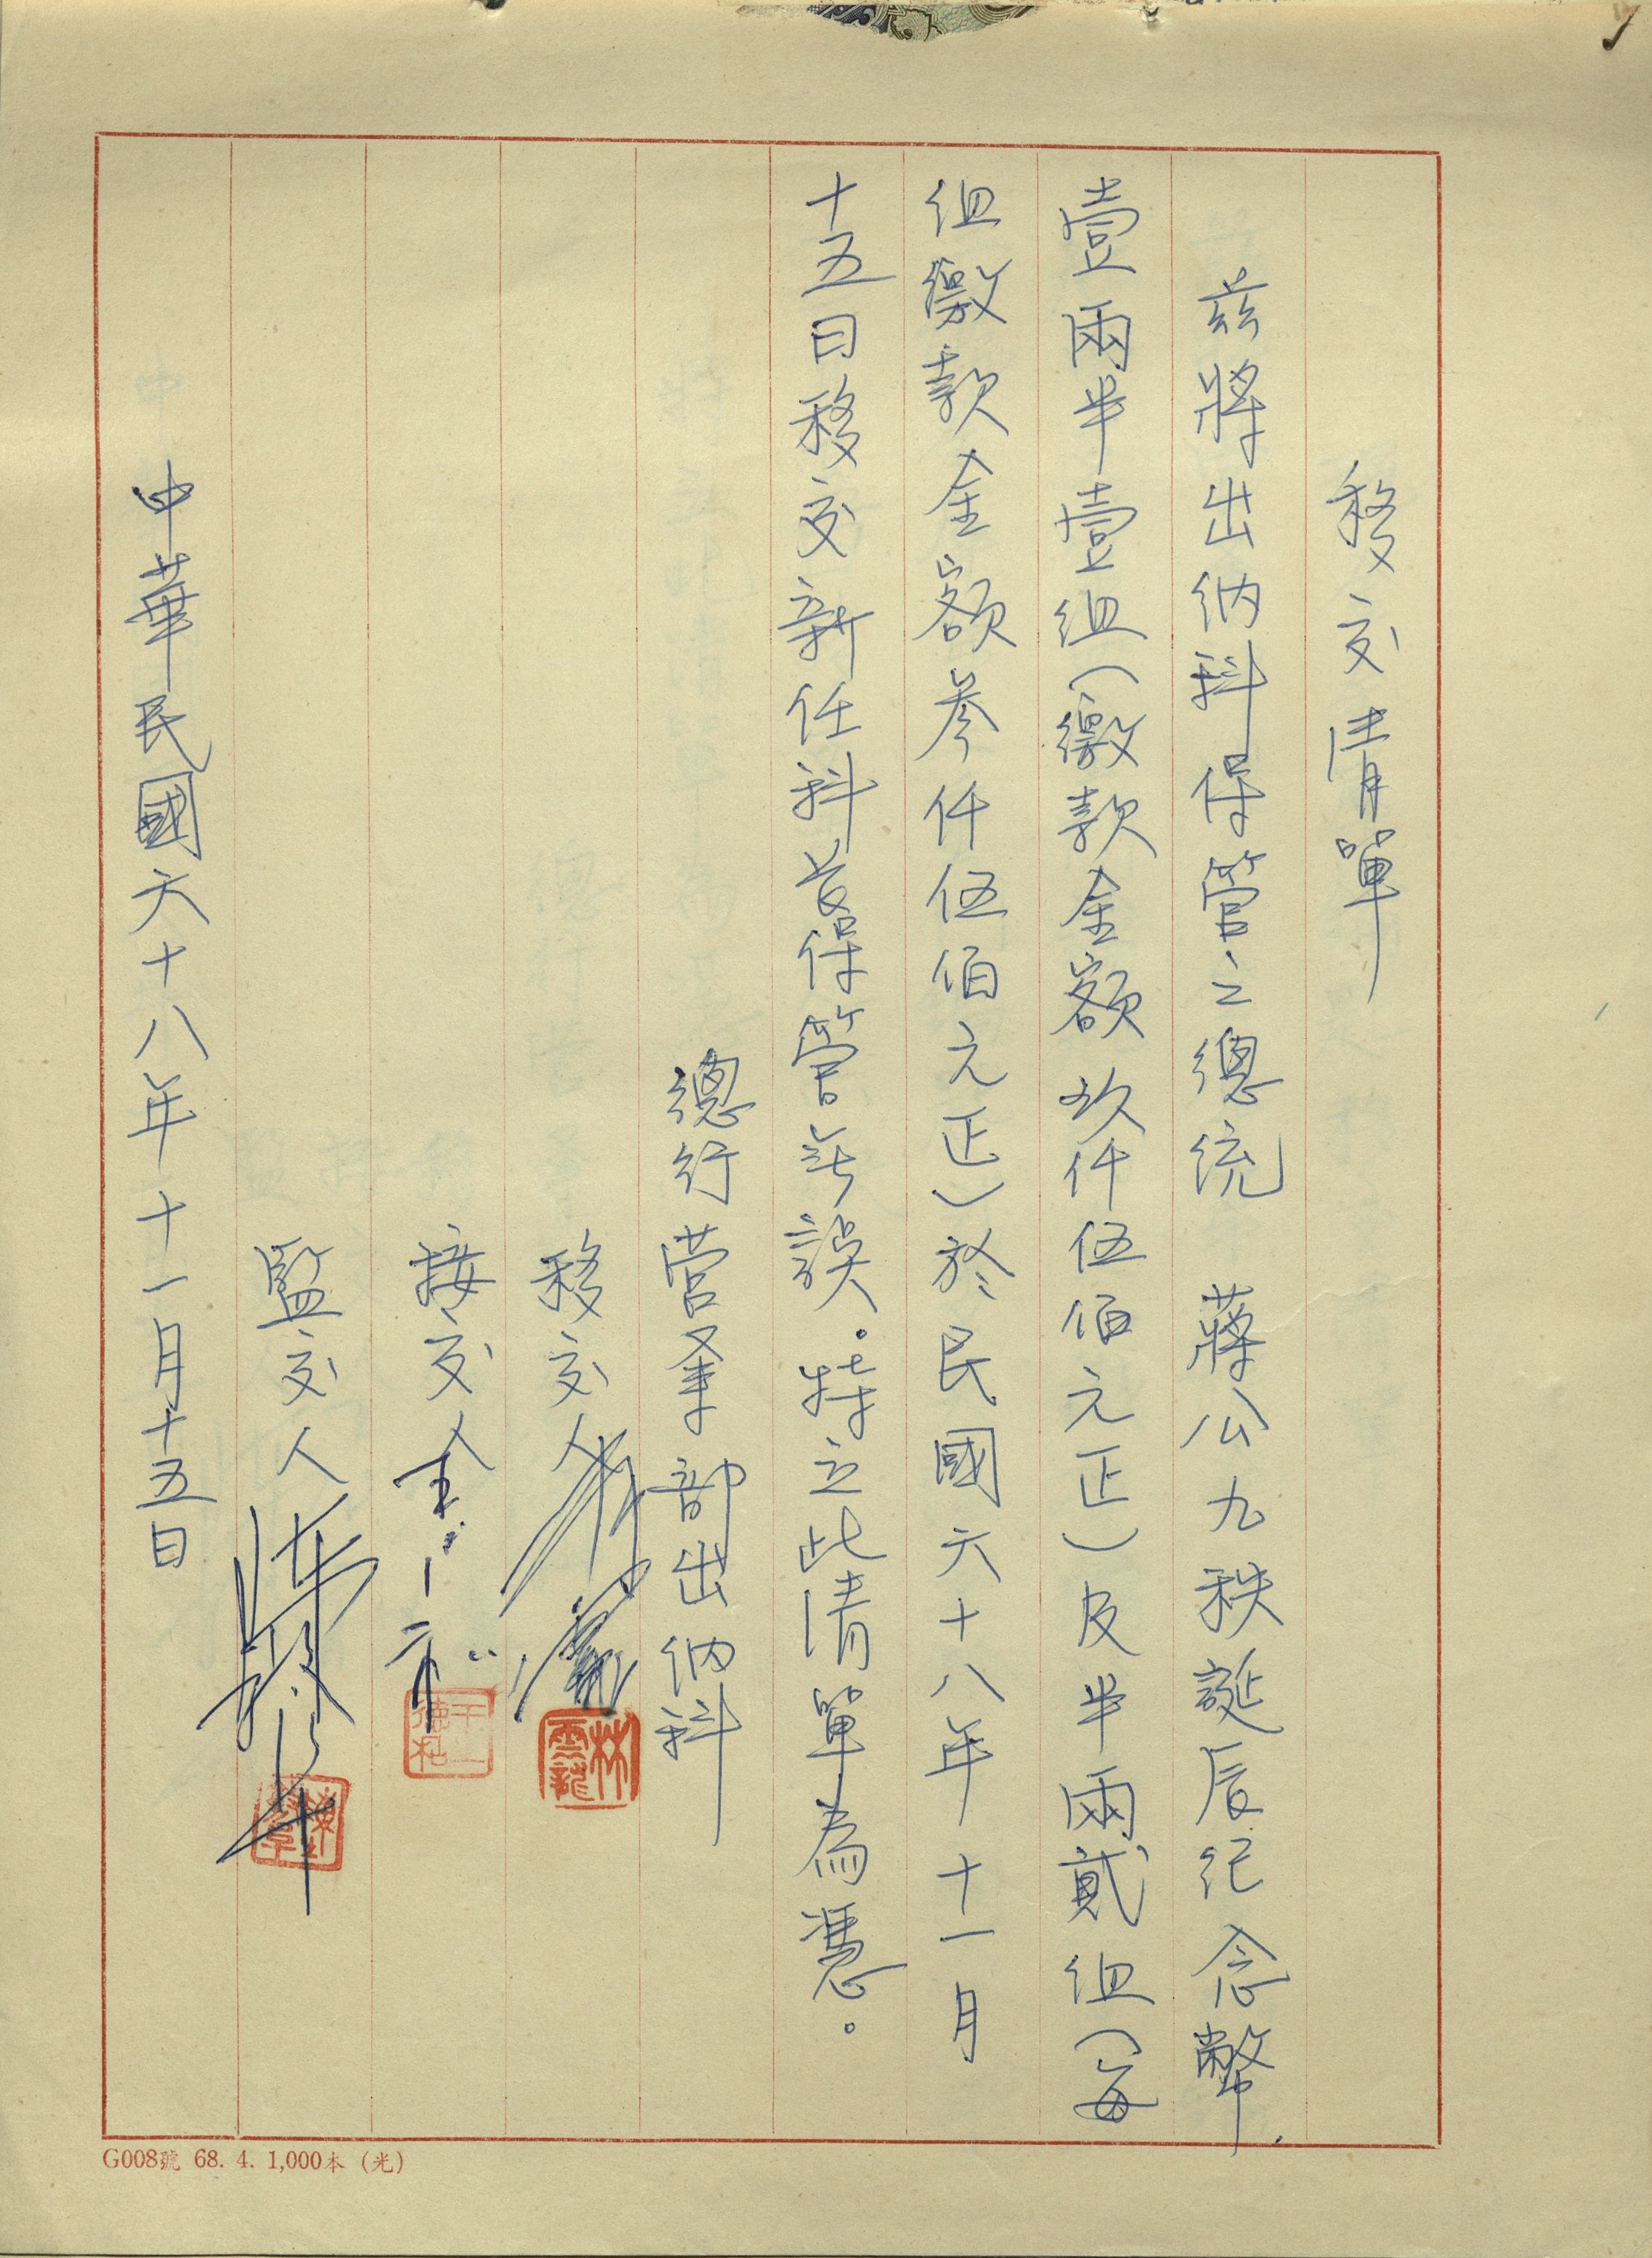 移交清單
茲將出納科保管之總統　蔣公九秩誕辰纪念幣
壹兩半壹組（繳款金額玖仟伍佰元正）及半兩貳組（每
組繳款金額參仟伍佰元正）於民國六十八年十一月
十五日移交新任科長保管無誤。特立此清單為憑。
總行營業部出納科
移交人 林雲龍
接交人 王德松
監交人
中華民國六十八年十一月十五日
G008號 68. 4. 1,000本（光）